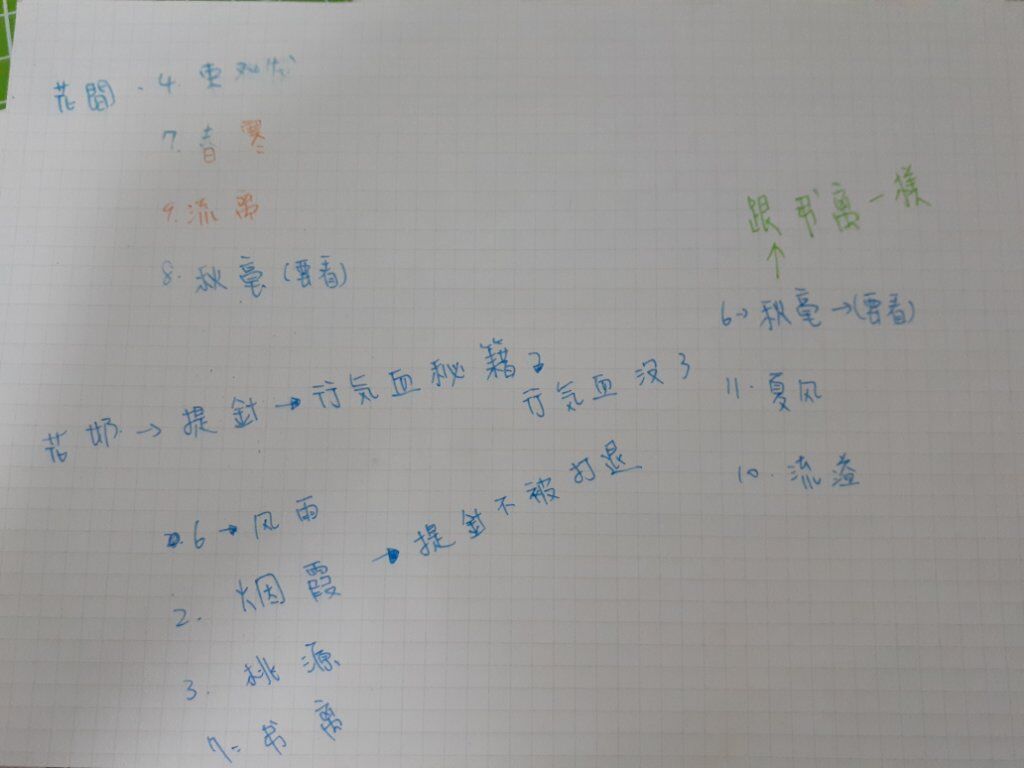 花間 · 4. 東
7. 春寒
9. 流
8. 秋毫(要看)
跟 弗离一樣
↑
6→ 秋毫→(要看)
花奶→提針→行气血秘籍
行气血没了
11. 夏风
10. 流溢
6→风雨
→提針不被打退
2. 烟霞
3. 桃源
7. 弗离